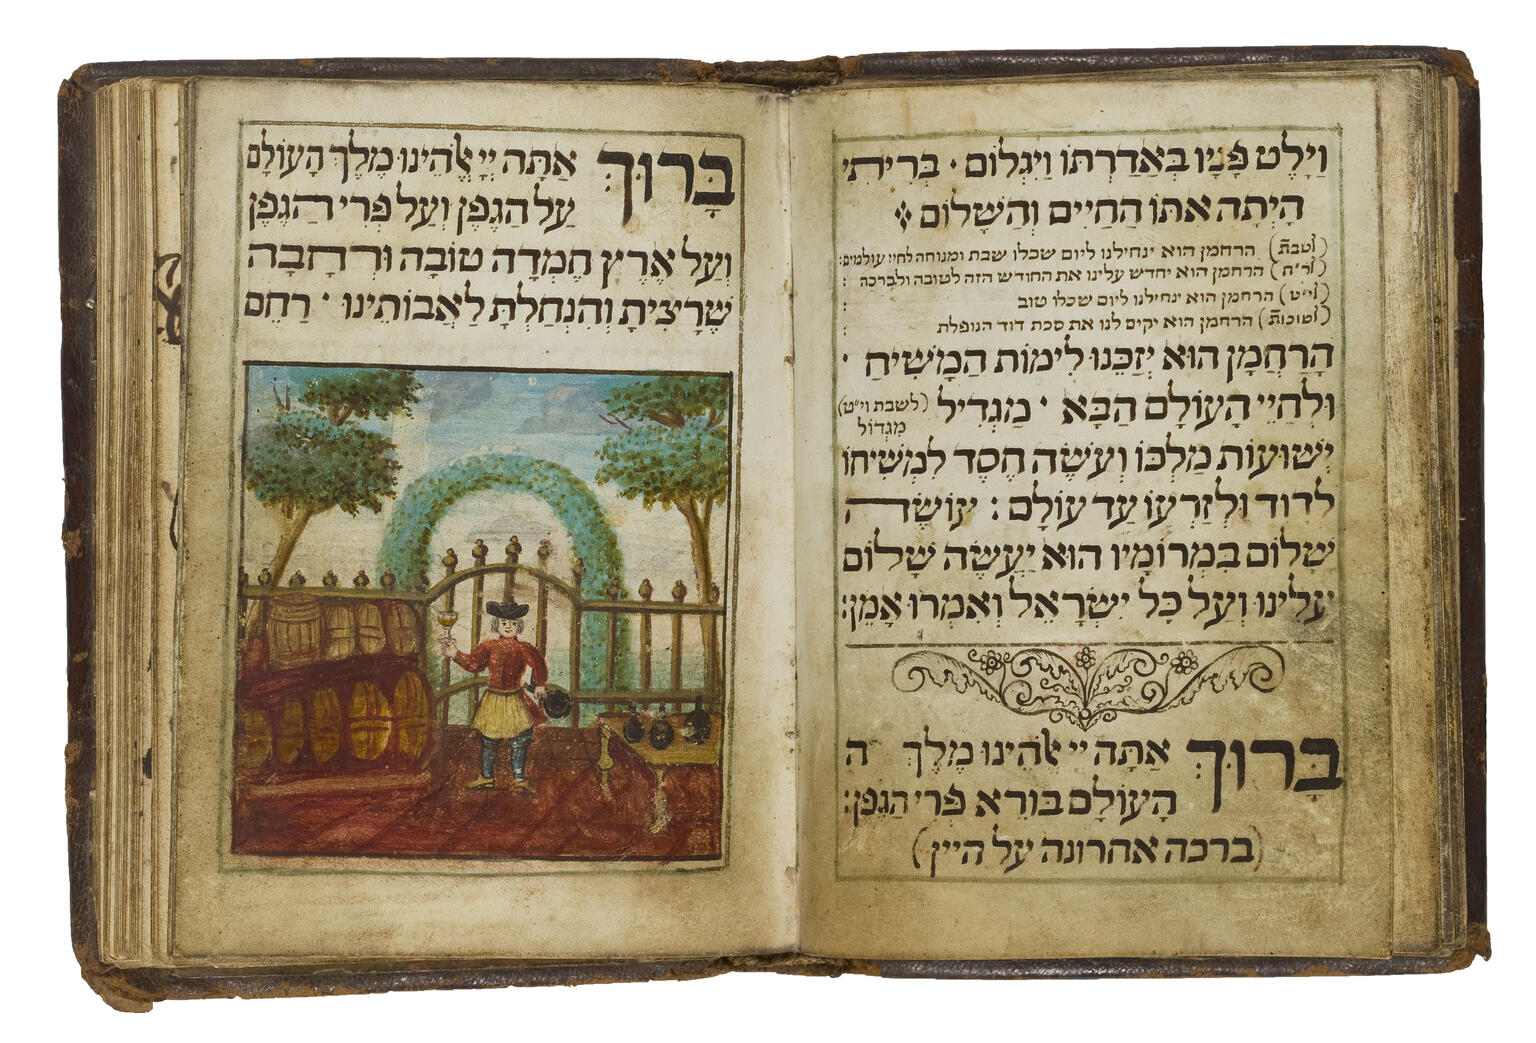 וַיָלֶט פָּנָיו בְּאַדַרְתּוֹ וַיִגְלוֹם · בְּרִיתִי
הָיְתָה אתּוֹ הַחַיִים וְהַשָׁלוֹם
(לשבת) הרחמן הוא ינחילנו ליום שכלו שבת ומנוחה לחיי עולמים:
(לר״ח) הרחמן הוא יחדש עלינו את החודש הזה לטובה ולברכה :
(לי״ט) הרחמן הוא ינחילנו ליום שכלו טוב :
(לסוכות) הרחמן הוא יקים לנו את סכת דוד הנופלת :
הָרַחֲמָן הוּא יְזַכֵּנוּ לִימוֹת הַמָשִׁיחַ ·
וּלְחַיֵי הָעוֹלָם הַבָּא · מַגְדִיל (לשבת וי״ט) מִגְדוֹל
יְשׁוּעוֹת מַלְכּוֹ וְעֹשֶׂה חֶסֶד לִמְשִׁיחוֹ
לְדָוִד וּלְזַרְעוֹ עַד עוֹלָם : עוֹשֶׂה
שָׁלוֹם בִּמְרוֹמָיו הוּא יַעֲשֶׂה שָׁלוֹם
עָלֵינוּ וְעַל כָּל יִשְׂרָאֵל וְאִמְרוּ אָמֵן:
בָּרוּךְ אַתָּה יי אֱלֹהֵינוּ מֶלֶךְ ה
הָעוֹלָם בּוֹרֵא פְּרִי הַגֶפֶן:
(ברכה אחרונה על היין)
בָּרוּךְ אַתָּה יְיָ אֱלֹהֵינוּ מֶלֶךְ הָעוֹלָם
עַל הַגֶפֶן וְעַל פְּרִי הַגֶפֶן
וְעַל אֶרֶץ חֶמְדָה טוֹבָה וּרְחָבָה
שֶׁרָצִיתָ וְהִנְחַלְתָּ לַאֲבוֹתֵינוּ · רַחֵם